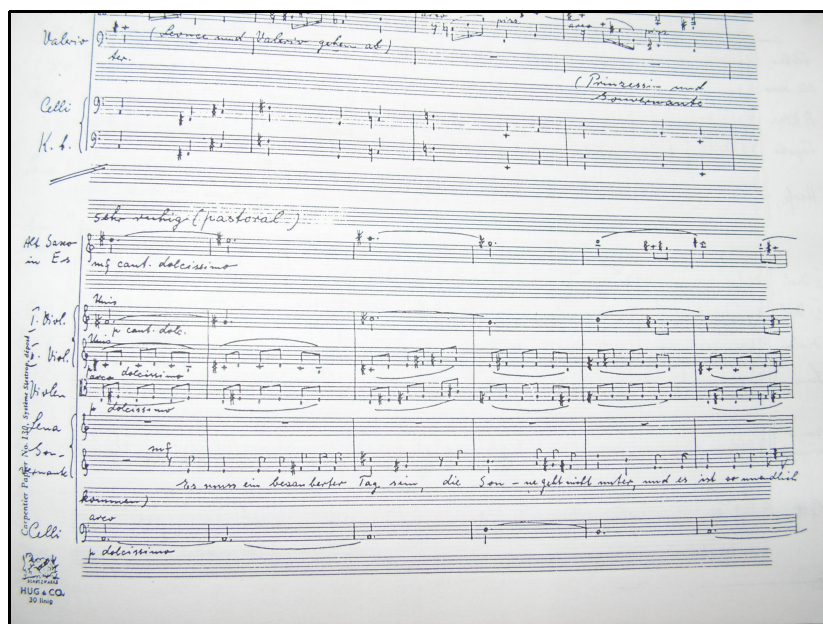 arco pizz arco pizz
Valerio
(Leonce und Valerio gehen ab)
ter.
(Prinzessin und
Gouvernante
Celli
K. b.
sehr ruhig (pastoral)
Alt Saxo
in Es
mf cant. dolcissimo
Unis
I. Viol.
p cant. dolc.
Unis
Viol.
arco dolcissimo
Violen
p dolcissimo
Lena
Gou-
vernante
mf
Es muss ein bezauberter Tag sein, die Son - ne geht nicht unter, und es ist so unendlich
kommen)
arco
Celli
p dolcissimo
Carpentier Papier No. 130, Système Sestrop, déposé
SCHUTZMARKE
HUG & CO.
30 linig